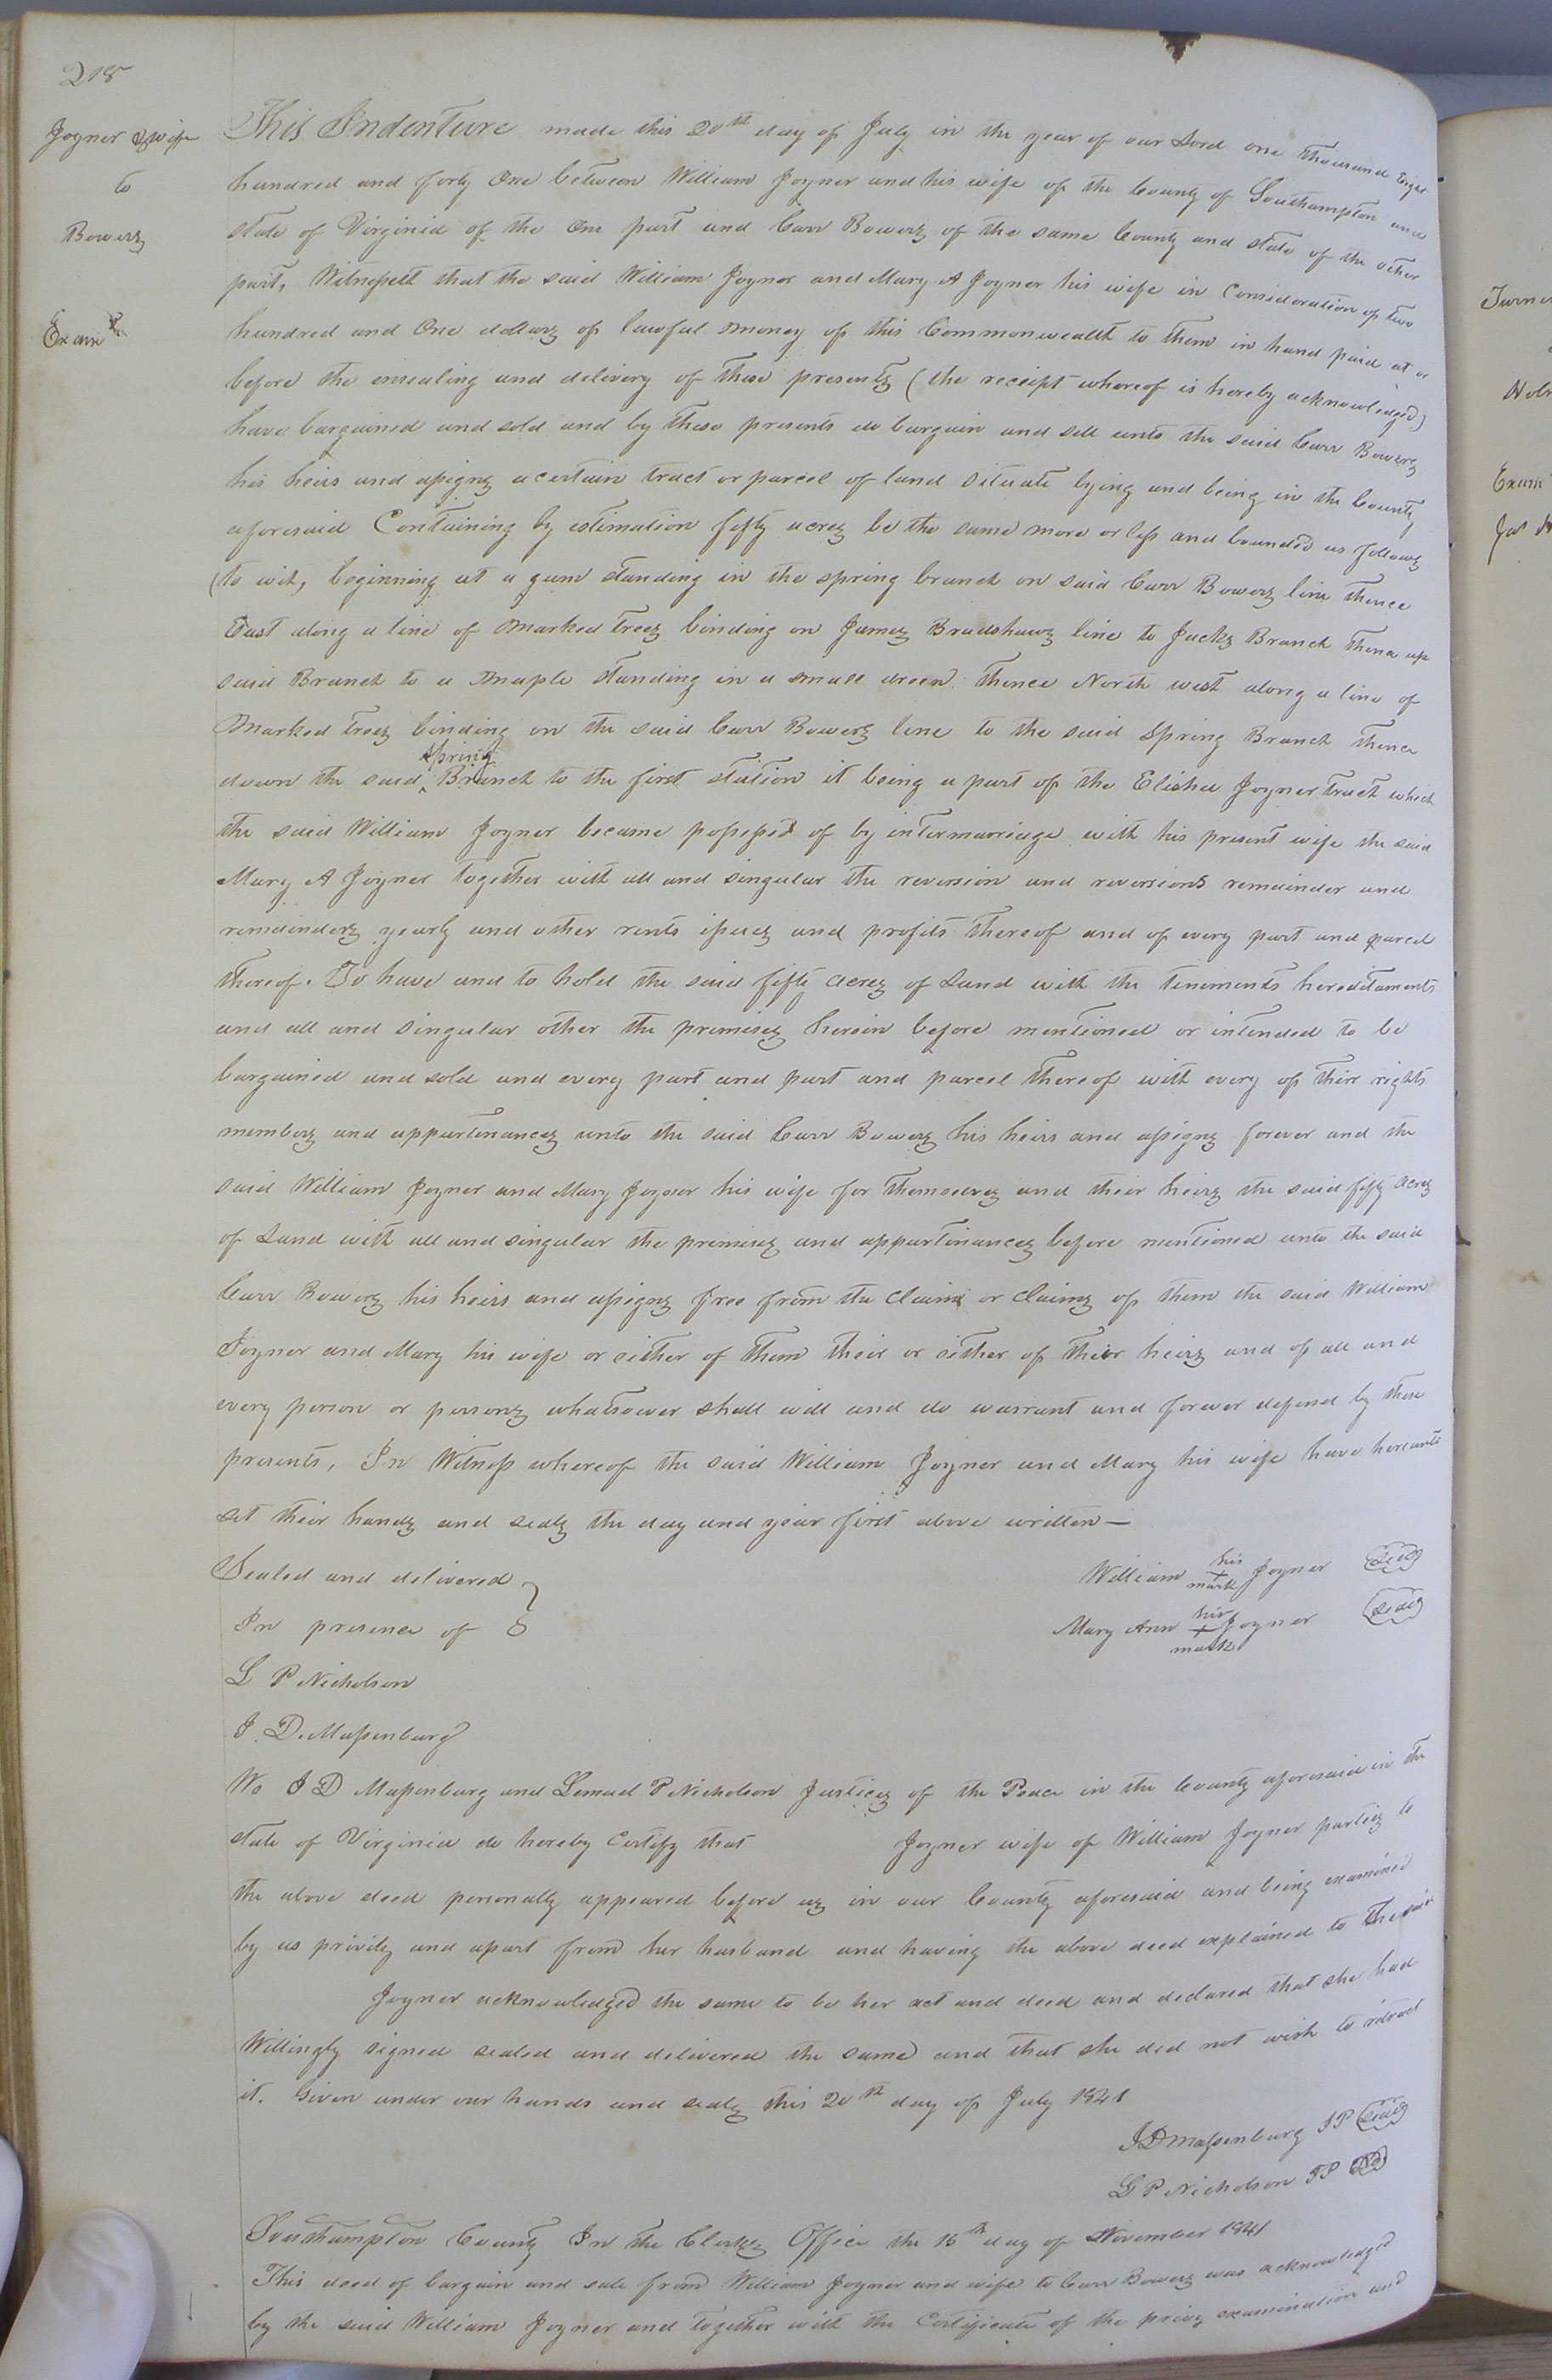 218
Joyner & wife
to
Bowers
Exam^d
This Indenture made this 20th day of July in the year of our Lord one thousand Eight
hundred and forty One between William Joyner and his wife of the County of Southampton and
state of Virginia of the One part and Carr Bowers of the same County and state of the other
part, Witnesseth that the said William Joyner and Mary A Joyner his wife in Consideration of two
hundred and One dollars of lawful money of this Commonwealth to them in hand paid at or
before the ensealing and delivery of these presents (the receipt whereof is hereby acknowledged)
have bargained and sold and by these presents do bargain and sell unto the said Carr Bowers
his heirs and assigns a certain tract or parcel of land situate lying and being in the County
aforesaid Containing by estimation fifty acres be the same more or less and bounded as follows
(to wit, beginning at a gum standing in the spring branch on said Carr Bowers line thence
East along a line of marked trees binding on James Bradshaws line to Jacks Branch thence up
said Branch to a maple standing in a small dreen thence North west along a line of
marked trees binding on the said Carr Bowers line to the said Spring Branch thence
down the said spring Branch to the first station it being a part of the Elisha Joyner tract which
the said William Joyner became possessed of by intermarriage with his present wife the said
Mary A Joyner together with all and singular the reversion and reversions remainder and
remainders yearly and other rents issues and profits thereof and of every part and parcel
thereof. To have and to hold the said fifty acres of Land with the tenements hereditaments
and all and singular other the premises herein before mentioned or intended to be
bargained and sold and every part and part and parcel thereof with every of their rights
members and appurtenances unto the said Carr Bowers his heirs and assigns forever and the
said William Joyner and Mary Joyner his wife for themselves and their heirs the said fifty acres
of Land with all and singular the premises and appurtinances before mentioned unto the said
Carr Bowers his heirs and assigns free from the claim or claims of them the said William
Joyner and Mary his wife or either of them their or either of their heirs and of all and
every person or persons whatsoever shall will and do warrant and forever defend by these
presents, In Witness whereof the said William Joyner and Mary his wife have hereunto
set their hands and seals the day and year first above written—
Sealed and delivered
In presence of
William his + mark Joyner (seal)
Mary Ann his + mark Joyner (seal)
L P Nicholson
J. D. Massenburg
We J D Massenburg and Lemuel P Nicholson Justices of the Peace in the County aforesaid in the
state of Virginia do hereby Certify that Joyner wife of William Joyner parties to
the above deed personally appeared before us in our County aforesaid and being examined
by us privily and apart from her husband and having the above deed explained to the said
Joyner acknowledged the same to be her act and deed and declared that she had
Willingly signed sealed and delivered the same and that she did not wish to retract
it. Given under our hands and seals this 20th day of July 1841
J D Massenburg JP (seal)
L P Nicholson JP (seal)
Southampton County In the Clerks Office the 16th day of November 1841
This deed of bargain and sale from William Joyner and wife to Carr Bowers was acknowledged
by the said William Joyner and together with the Certificate of the privy examination and
Exam